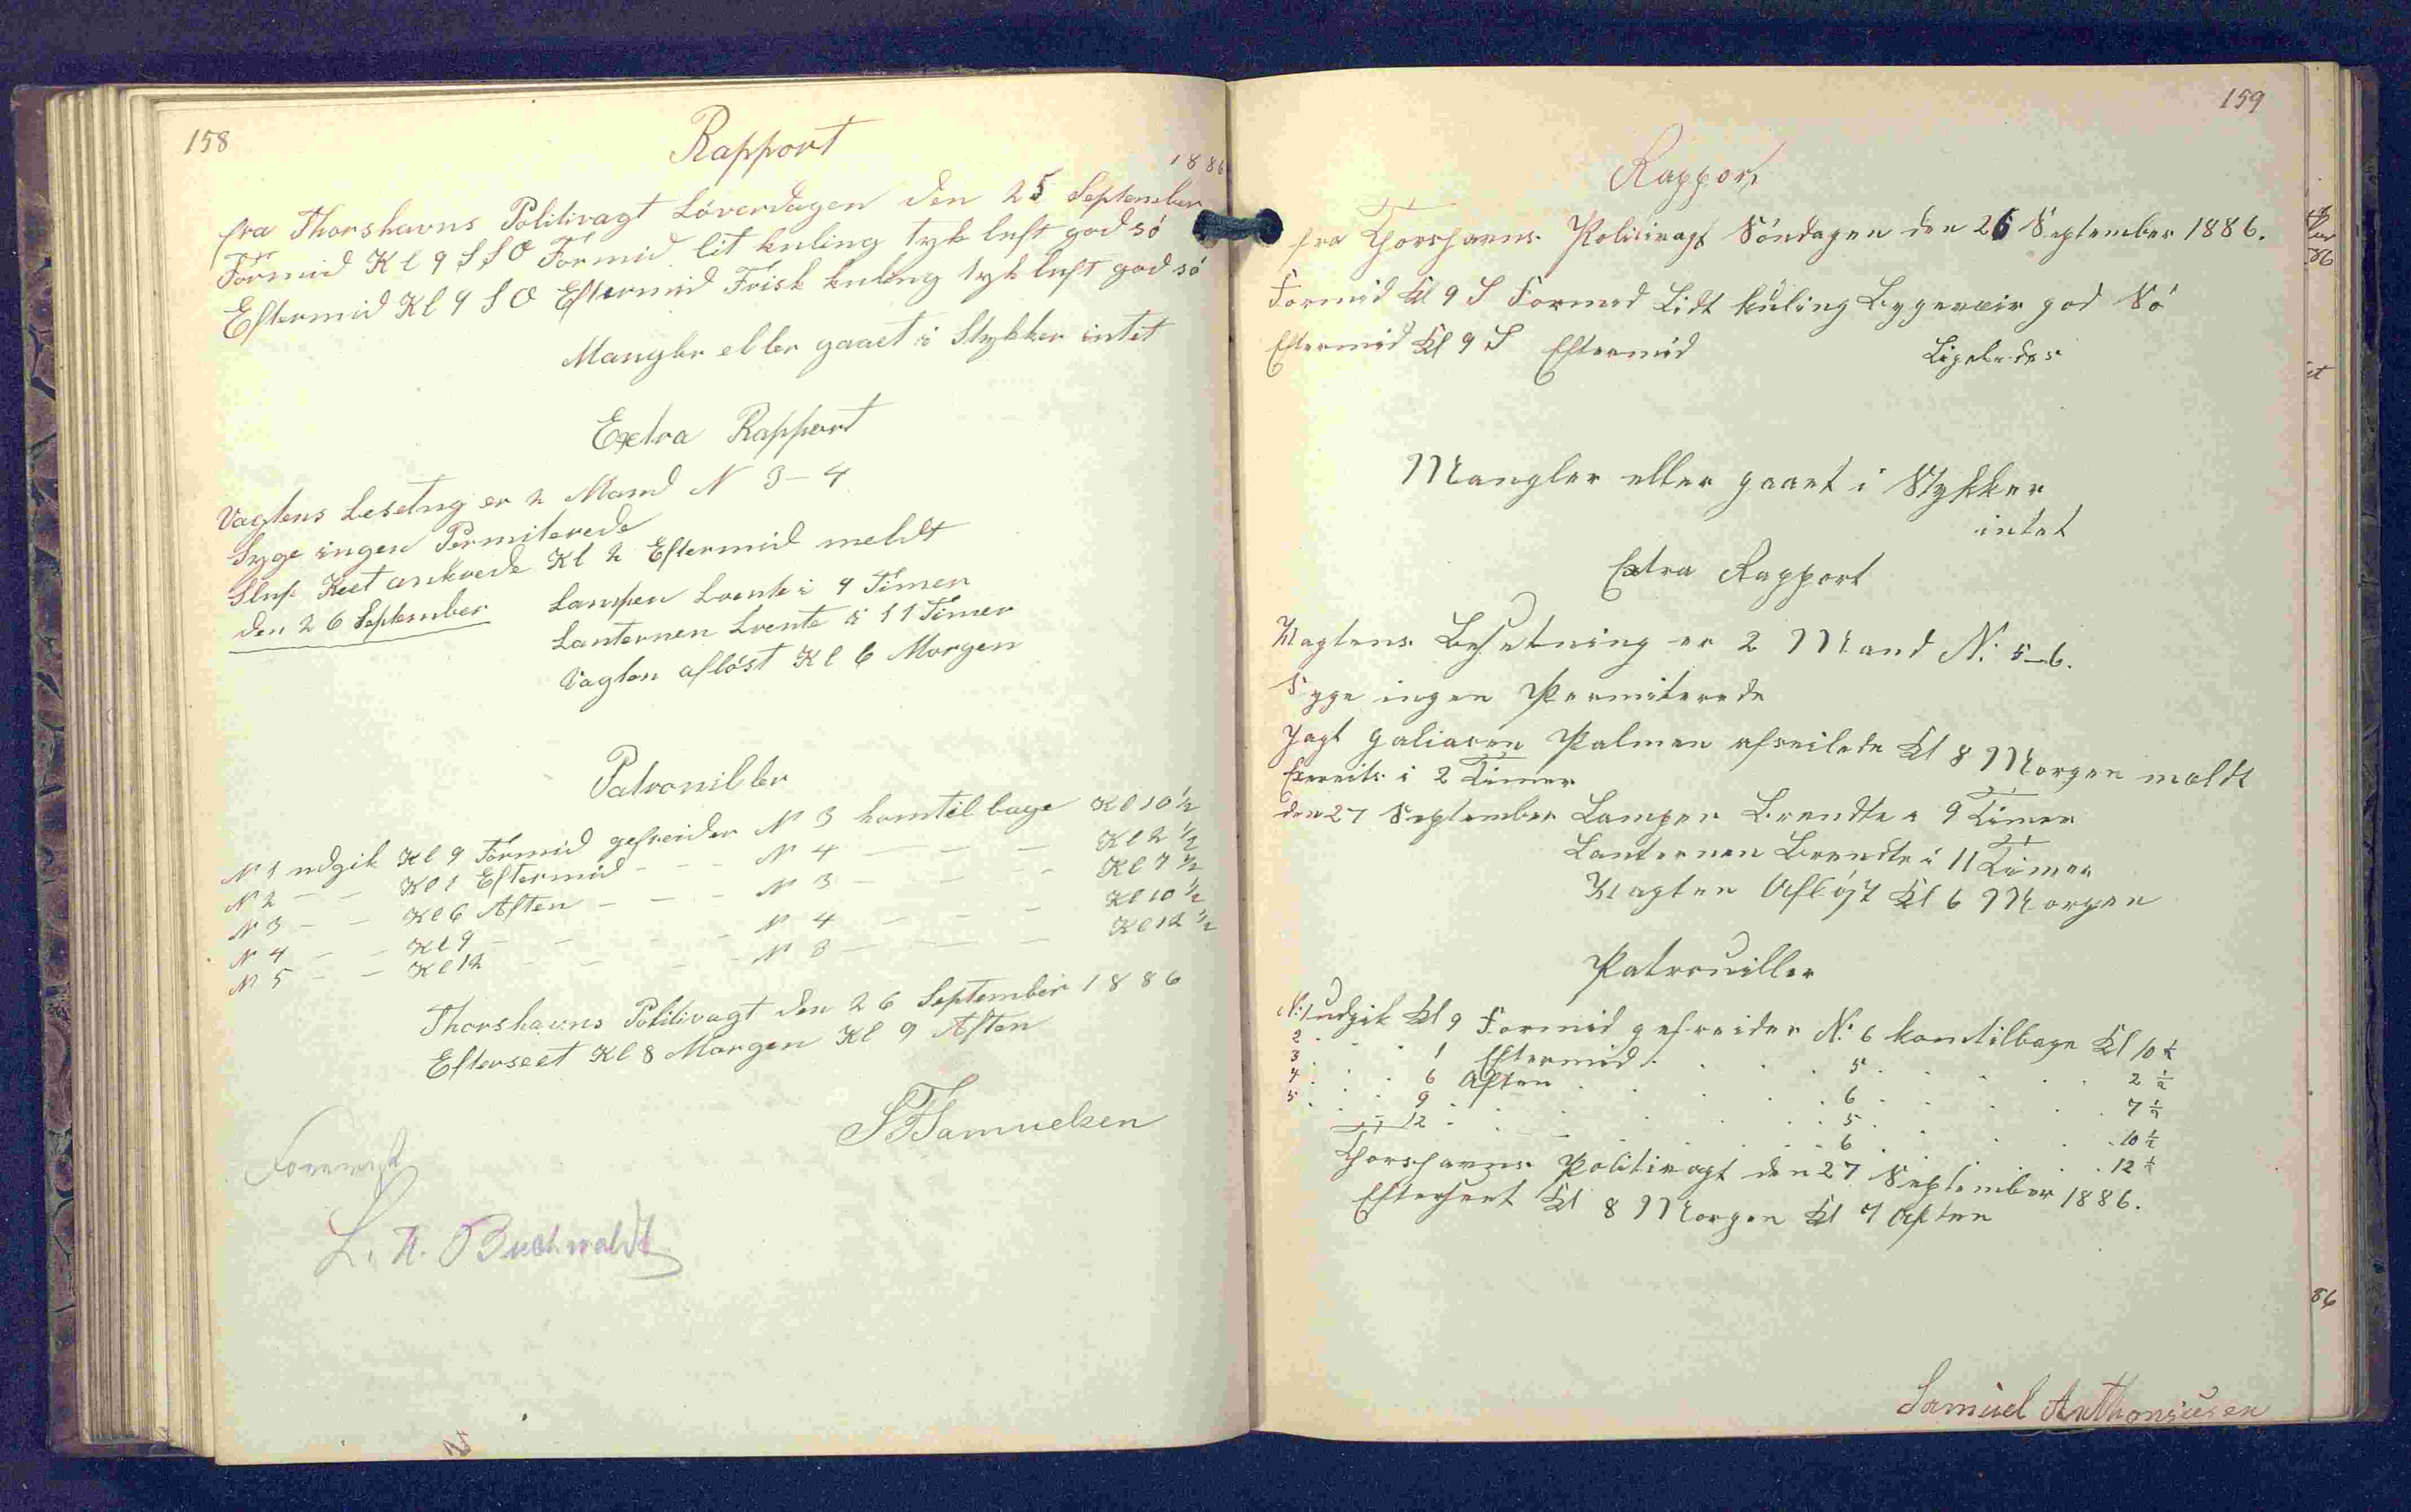 158
Rapport
1886
fra Thorshavns Politivagt Löverdagen den 25 September
Formid Kl 9 SSO Formid lit kuling tyk luft god sö
Eftermid Kl 9 SO Eftermid Frisk kuling tyk luft god sö
Mangler eller gaaet i Stykker intet
Extra Rapport
Vagtens besetng er 2 Mand N 3-4
Syge ingen Permiterede
Slup Keet ankrede Kl 2 Eftermid meldt
den 26 September Lampen brente i 9 Timer
Lanternen brente i 11 Timer
Vagten aflöst Kl 6 Morgen
Patrouiller
N 1 udgik Kl 9 Formid gefreider N 3 komtilbage Kl 10 1/2
N 2 – – Kl 1 Eftermid – – N 4 – – – Kl 2 1/2
N 3 – – Kl 6 Aften – – – N 3 – – – Kl 7 1/2
N 4 – – Kl 9 – – – – N 4 – – – Kl 10 1/2
N 5 – – Kl 12 – – – – N 3 – – – Kl 12 1/2
Thorshavns Politivagt den 26 September 1886
Efterseet Kl 8 Morgen Kl 9 Aften
Samuelsen
Forevist
L. A. Buchwaldt
159
Rapport
fra Thorshavns Politivagt Söndagen den 26 September 1886.
Formid Kl 9 S Formed Lidt kuling Bygeveir god Sö
Eftermid Kl 9 S Eftermid Ligeledes
Mangler eller gaaet i Stykker
intet
Extra Rapport
Vagtens Besetning er 2 Mand N: 5-6.
Syge ingen Permiterede
Jagt Galiasen Palmen afseilede Kl 8 Morgen meldt
Exersits i 2 Timer
den 27 September Lampen Brendte i 9 Timer
Lanternen Brendte i 11 Timer
Vagten Aflöst Kl 6 Morgen
Patrouiller
N: 1 udgik Kl 9 Formid gefreider N: 6 komtilbage Kl 10 1/2
2 . . . 1 Eftermid . . . 5 . . . . 2 1/2
3 . . . 6 Aften . . . . 6 . . . . 7 1/2
4 . . . 9 . . . . . 5 . . . . 10 1/2
5 . . . 12 . . . . . 6 . . . . 12 1/2
Thorshavns Politivagt den 27 September 1886.
Efterseet Kl 8 Morgen Kl 7 Aften
Samuel Anthoniusen
86